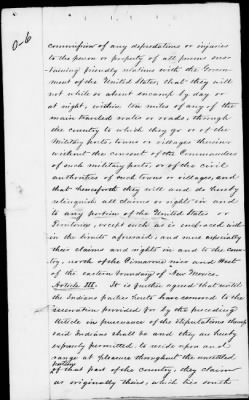 0-6
commission of any depredations or injuries
to the person or property of all persons sus-
taining friendly relations with the Govern-
ment of the United States; that they will
not while so absent encamp by day or
at night, within ten miles of any of the
main traveled routes or roads, through
the country to which they go or of the
Military posts, towns or villages therein
without the consent of the Commanders
of such military posts, or of the civil
authorities of such towns or villages, and
that henceforth they will and do hereby
relinquish all claims or rights in and
to any portion of the United States or
Territories, except such as is embraced with
in the limits aforesaid, and more especially
their claims and rights in and to the coun-
try, north of the Cimarone river and West
of the eastern boundary of New Mexico.
Article III. It is further agreed that until
the Indians parties hereto have removed to the
reservation provided for by the preceding
Article in pursuance of the stipulations thereof,
said Indians shall be and they are hereby
expressly permitted to reside upon and
range at pleasure throughout the unsettled
portions
of that part of the country, they claim
as originally theirs, which lies south